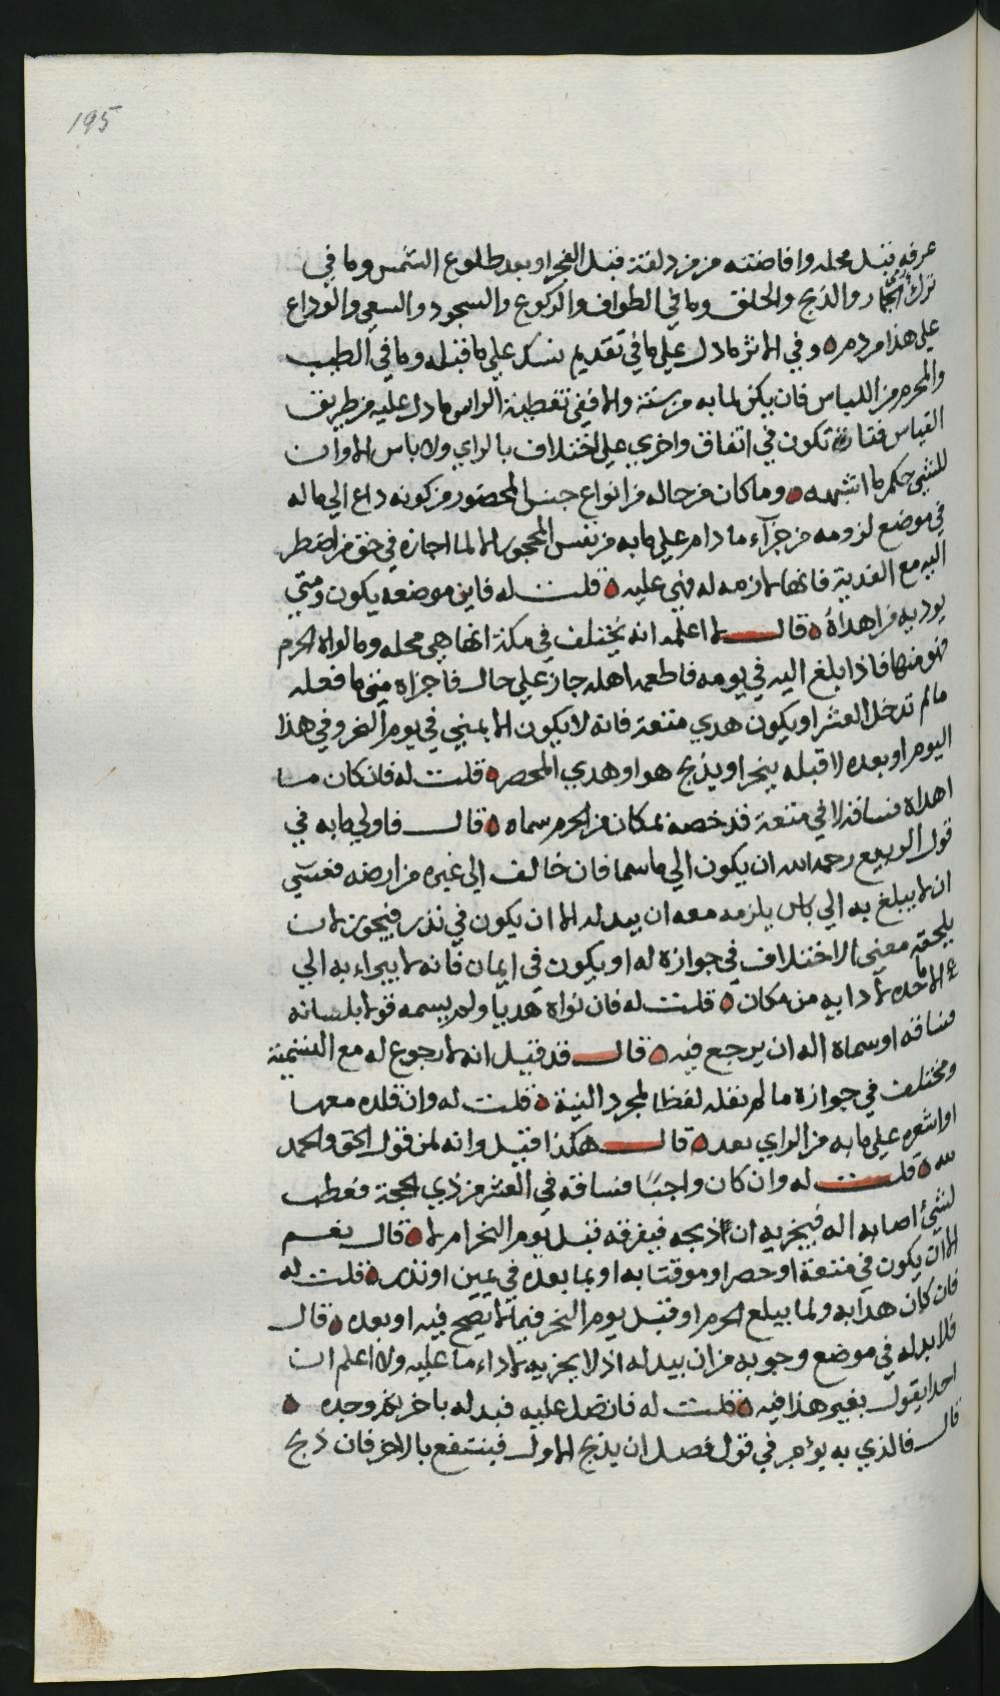 195
عرفه قبل محله وافاضته من مزدلفة قبل الفجر او بعد طلوع الشمس وما في
ترك الجمار والذبح والحلق وما في الطواف والركوع والسجود والسعي والوداع
على هذا من دم وفي الاثر ما دل على ما في تقديم نسك على ما قبله وما في الطيب
والمحرم من اللباس فان يكن لما به من سنة والا ففي تغطية الراس ما دل عليه من طريق
القياس فتارة تكون في اتفاق واخري على اختلاف بالراي ولا باس الا وان
للشي حكم ما اشبهه وما كان من حاله من انواع جنس المحضور من كونه داع الي ما له
في موضع لزومه من جزآء ما دام على ما به من نفس المحجور الا لما اجازه في حق من اضطر
اليه مع الفدية فانها لازمه له فهي عليه قلت له فاين موضعه يكون ومتي
يوديه من اهداه قال لا اعلمه انه يختلف في مكة انها هي محله وما لواه الحرم
فهو منها فاذا بلغ اليه في يومه فاطعمه اهله جاز على حال فاجزاه متي ما فعله
ما لم تدخل العشر او يكون هدي متعة فانه لا يكون الا بمني في يوم النحر وفي هذا
اليوم او بعده لا قبله ينحر او يذبح هو او هدي المحصر قلت له فان كان مـا
اهداه فساقه لا في متعة قد خصه بمكان من الحرم سماه قال فاولي ما به في
قول الربيع رحمه الله ان يكون الي ما سما فان خالف الي غيره من ارضه فعسي
ان لا يبلغ به الي باس يلزمه معه ان يبدله الا ان يكون في نذر فيجوز لان
يلحقه معني الاختلاف في جوازه له او يكون في ايمان فانه لا يبراء به الي
ما حده لادابه من مكان قلت له فان نواه هديا ولم يسمه قولا بلسانه
فساقه او سماه اله ان يرجع فيه قال قد قيل انه لا رجوع له مع التسمية
ومختلف في جوازه ما لم نقله لفظا لمجرد النية قلت له وان قلده معها
او اشعره على ما به من الراي بعد قال هكذا قيل وانه لمن قول الحق والحمد
لله قلت له وان كان واجبا فساقه في العشر من ذي الحجة فعطب
لشئ اصابه اله فيجزيه ان اذبحه فيفرقه قبل يوم النحر ام لا قال نعم
الا ان يكون في متعة او حصر او موقتا به او بما بعده في يمين او نذر قلت له
فان كان هدا به ولما يبلغ الحرم او قبل يوم النحر فيما لا يصح فيه او بعده قال
فلا بد له في موضع وجوبه من ان يبدله اذ لا يجزيه لاداء ما عليه ولا اعلم ان
احدا يقول بغير هذا فيه قلت له فان ضل عليه فبدله باخر ثم وجده
قال فالذي به يؤمر في قول فصل ان يذبح الاول فينتفع بالاخر فان ذبح